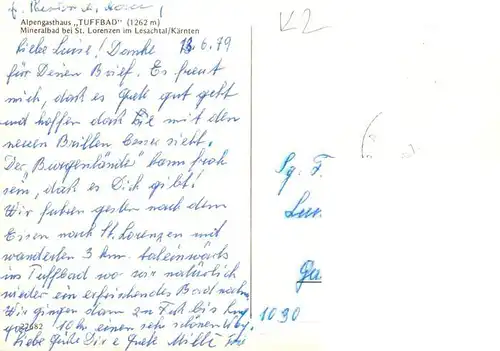 K2
Alpengasthaus „TUFFBAD" (1262 m)
Mineralbad bei St. Lorenzen im Lesachtal/Kärnten
Liebe Luise! Danke 13.6.79
für Deinen Brief. Es freut
mich, daß es Grete gut geht
und hoffen daß sie mit den
neuen Brillen besser sieht.
Der „Burgenländer" kann froh
sein, daß es Dich gibt!
Wir fuhren gestern nach dem
Essen nach St. Lorenzen und
wanderten 3 km. taleinwärts
ins Tuffbad wo wir natürlich
wieder ein erfrischendes Bad nahmen.
Wir gingen dann zu Fuß bis
10 einen sehr schönen Weg.
Liebe Grüße Dir u Grete Mitzi
22682
1030